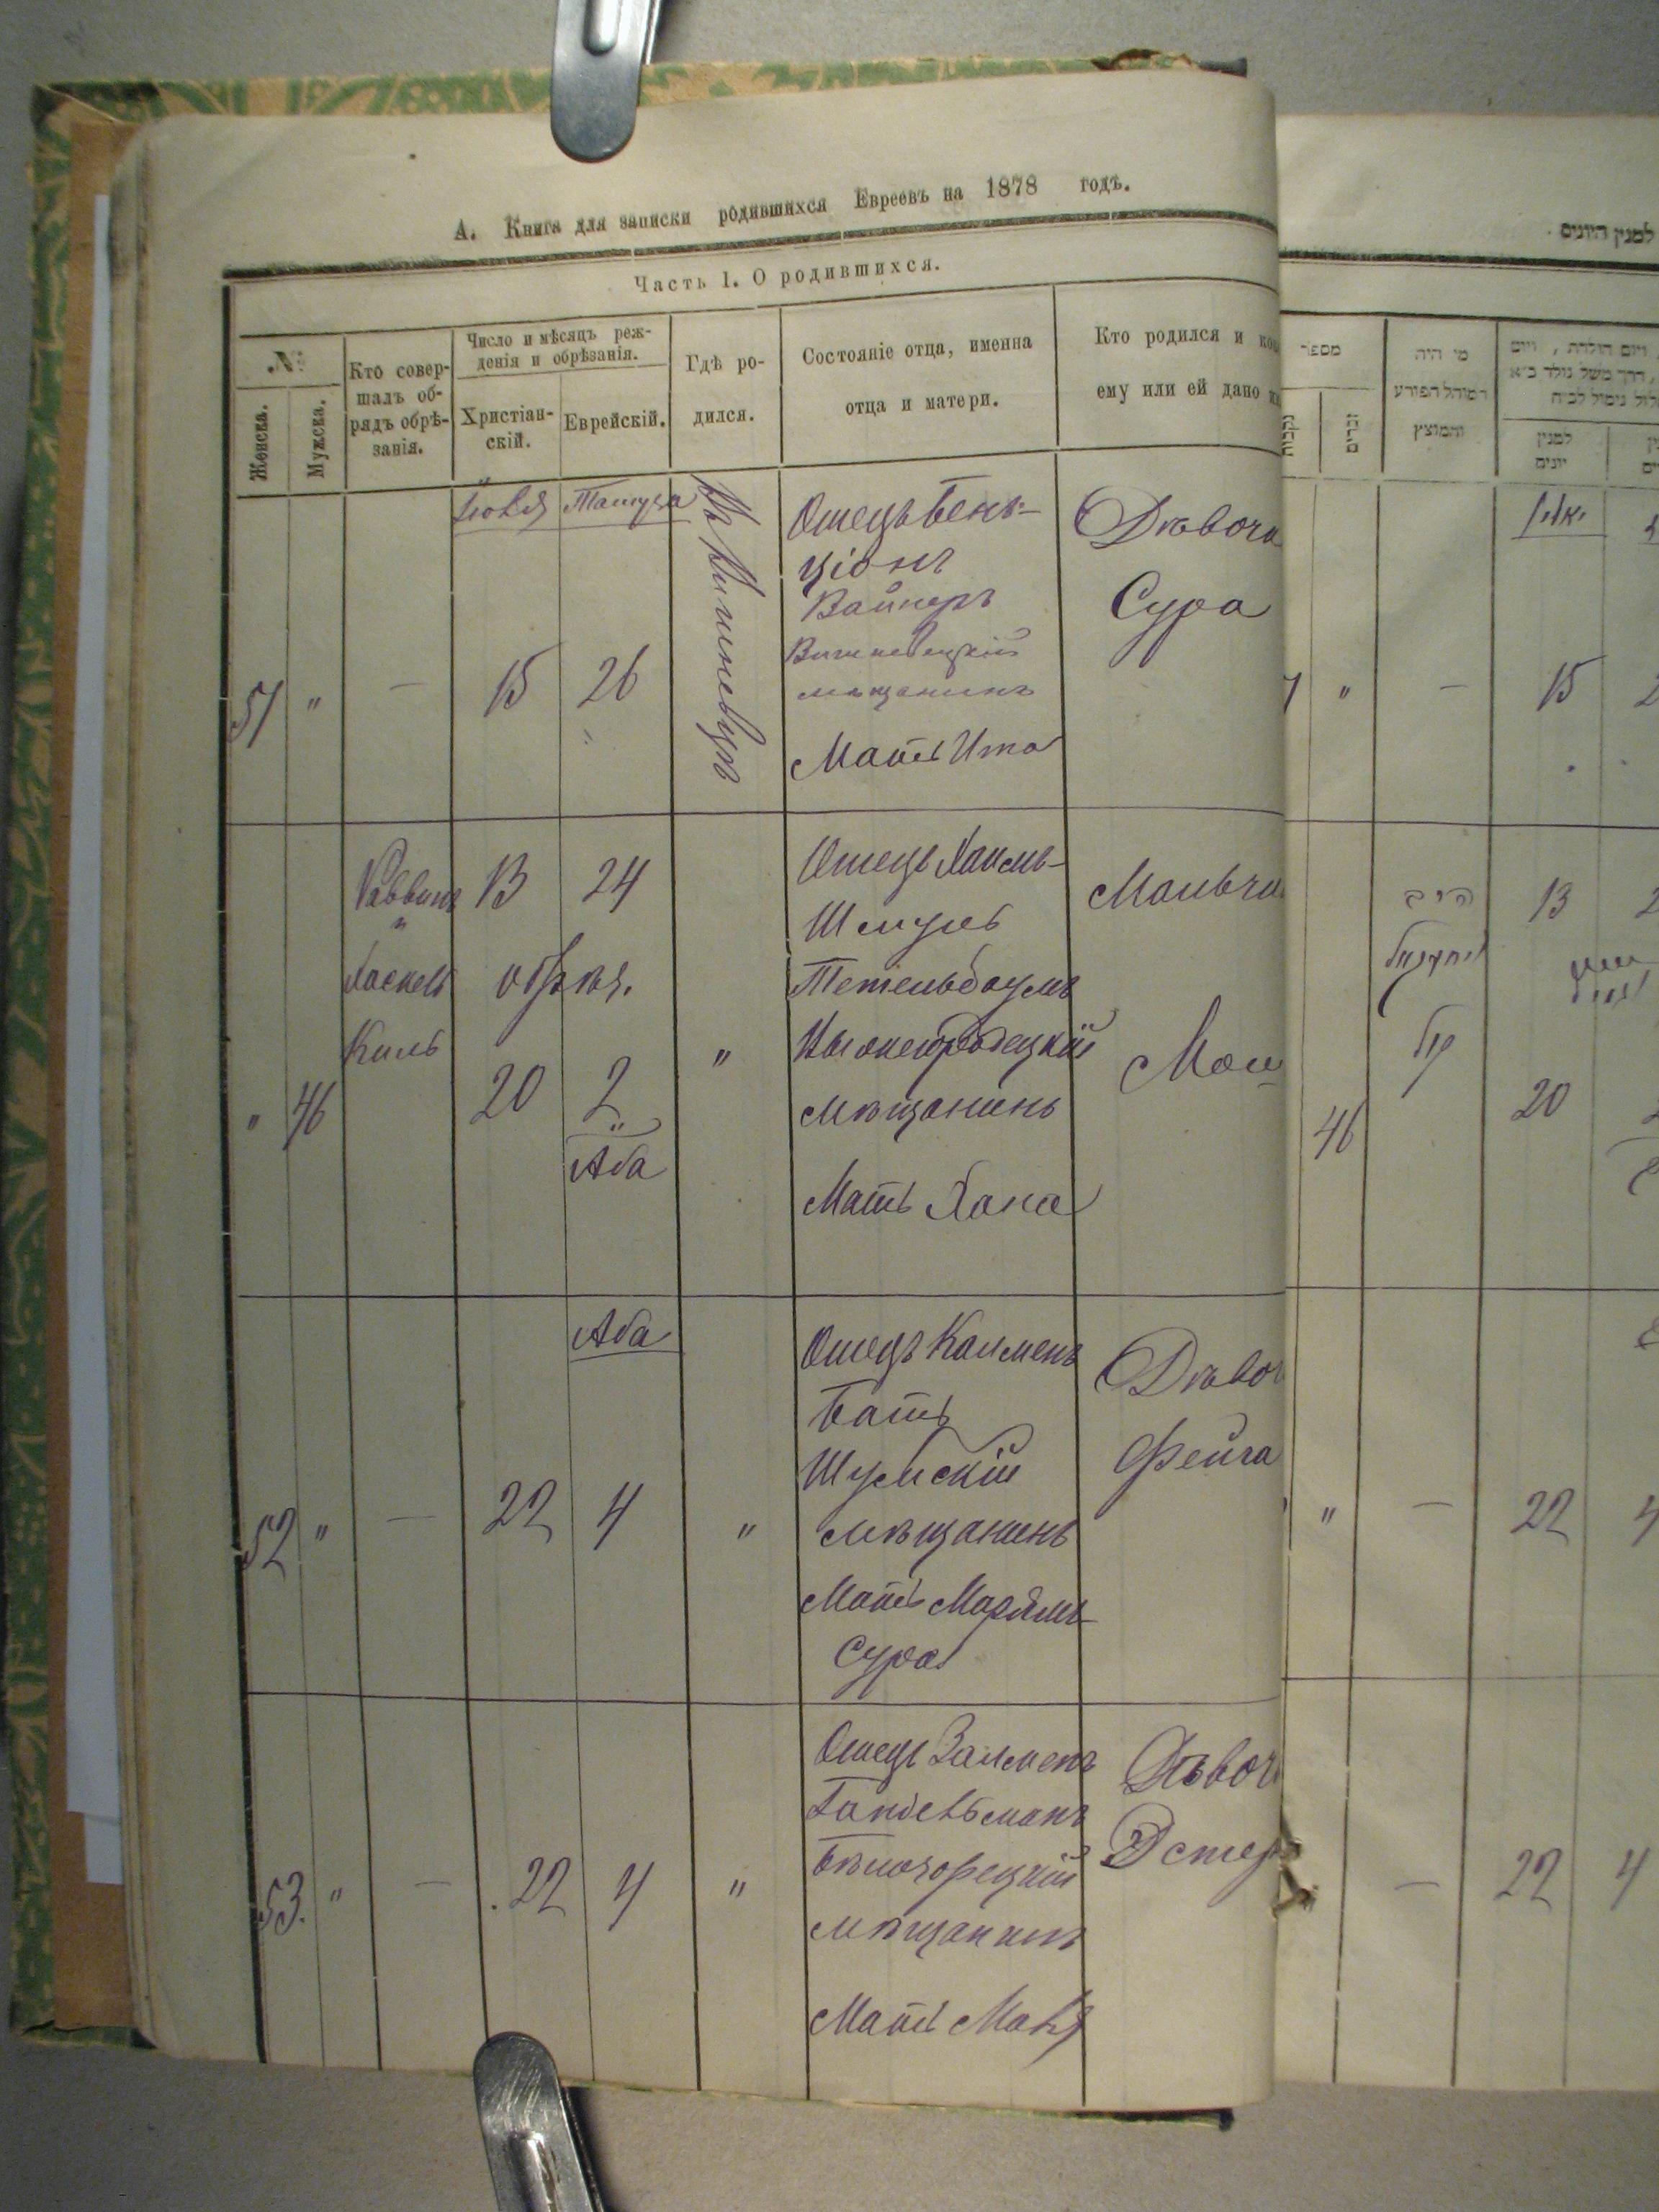 А. Книга для записки родившихся Евреевъ на 1878 годъ.
Часть I. О родившихся.
№
Женска.
Мужска.
Кто совер-
шалъ об-
рядъ обрѣ-
занія.
Число и мѣсяцъ реж-
денія и обрѣзанія.
Христіан-
скій.
Еврейскій.
Гдѣ ро-
дился.
Состояніе отца, именна
отца и матери.
Кто родился и
ему или ей дано
51
"
—
Іюля
15
Тамуза
26
Въ Вишневцѣ
Отецъ Бенъ-
ціонъ
Вайнеръ
Вишневецкій
мѣщанинъ
Мать Ита
Дѣвочка
Сура
"
46
Раввинъ
Хаскель
Киль
13
24
обрѣз.
20
2
Аба
"
Отецъ Хаимъ-
Шмуль
Тетельбаумъ
мѣщанинъ
Мать Хана
52
"
—
22
Аба
4
"
Отецъ Калменъ
Батъ
Шумскій
мѣщанинъ
Мать Марьямъ-
Сура
Фейга
53.
"
—
22
4
"
Отецъ Залменъ
Гандельманъ
мѣщанинъ
Мать
Эстер
למנין היונים
מספר
נקבות
זכרים
מי היה
המוהל הפורע
והמוצץ
למנין
יונים
יאלי
"
—
15
46
הרב
יחזקאל
קיל
13
20
"
—
22
4
—
22
4